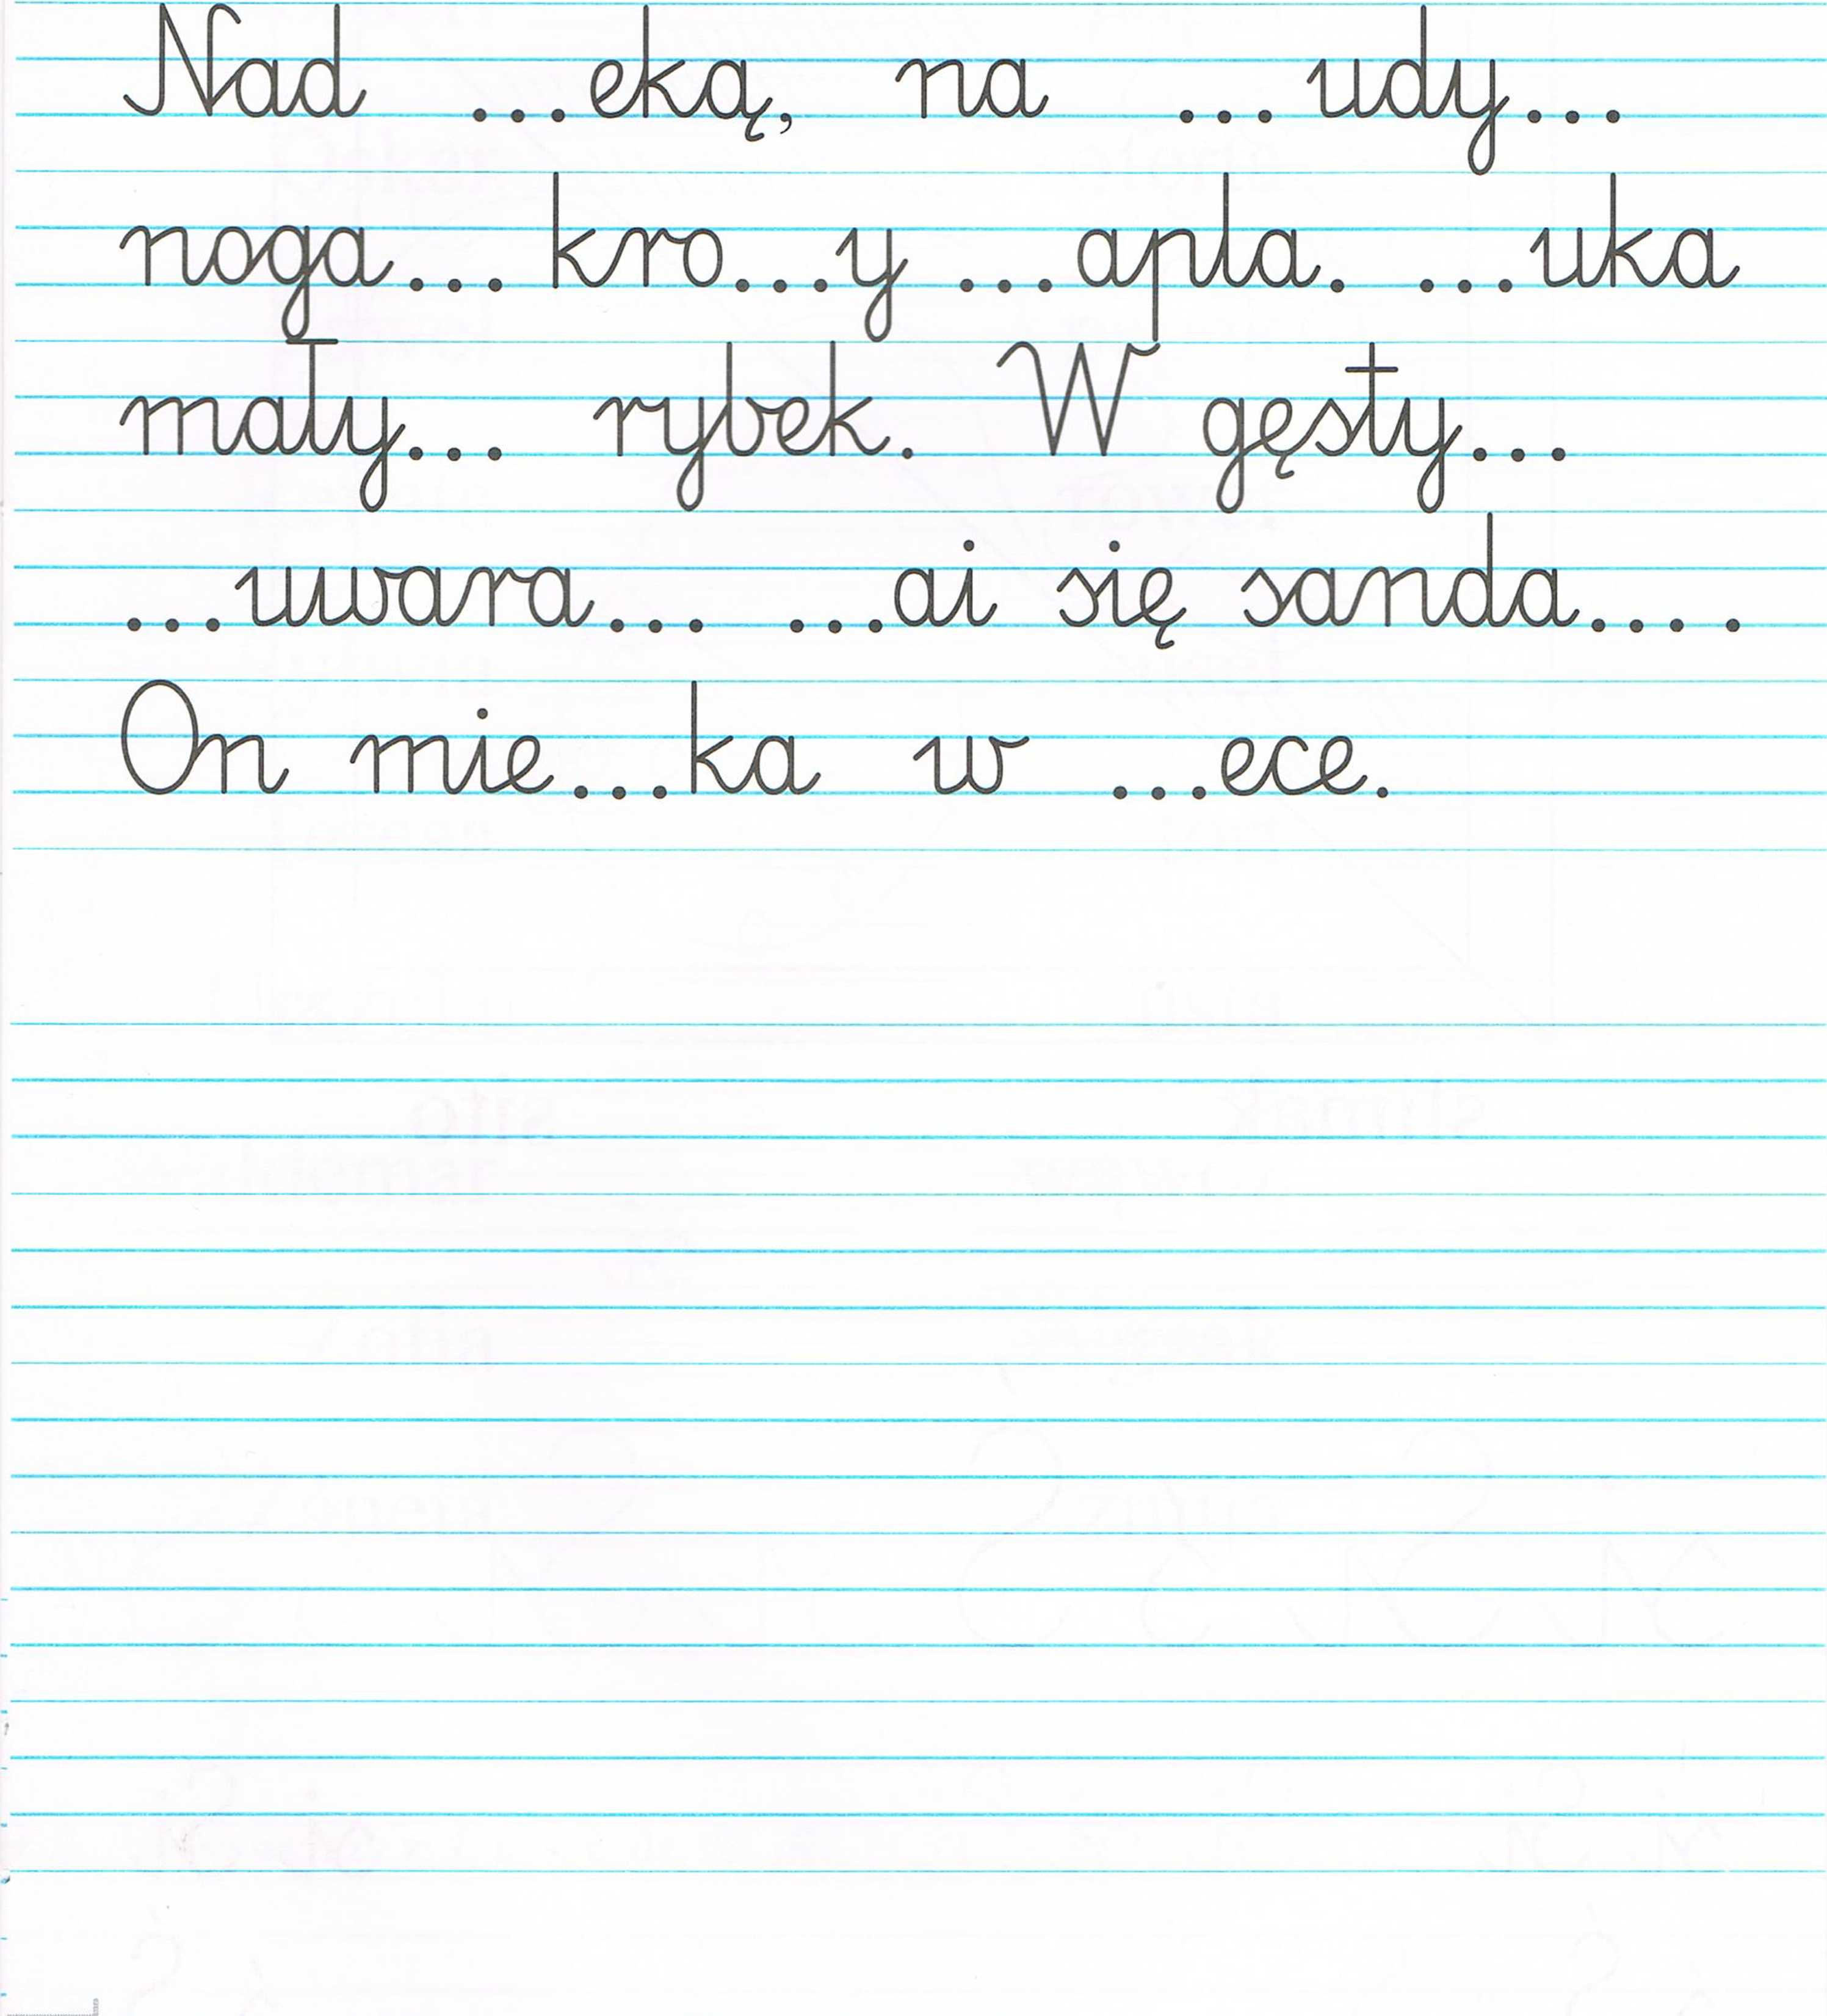 Nad ...eką, na ... udy...
noga... kro...y ...apla. ...uka
mały... rybek. W gęsty...
...uwara... ...ai się sanda....
On mie...ka w ...ece.